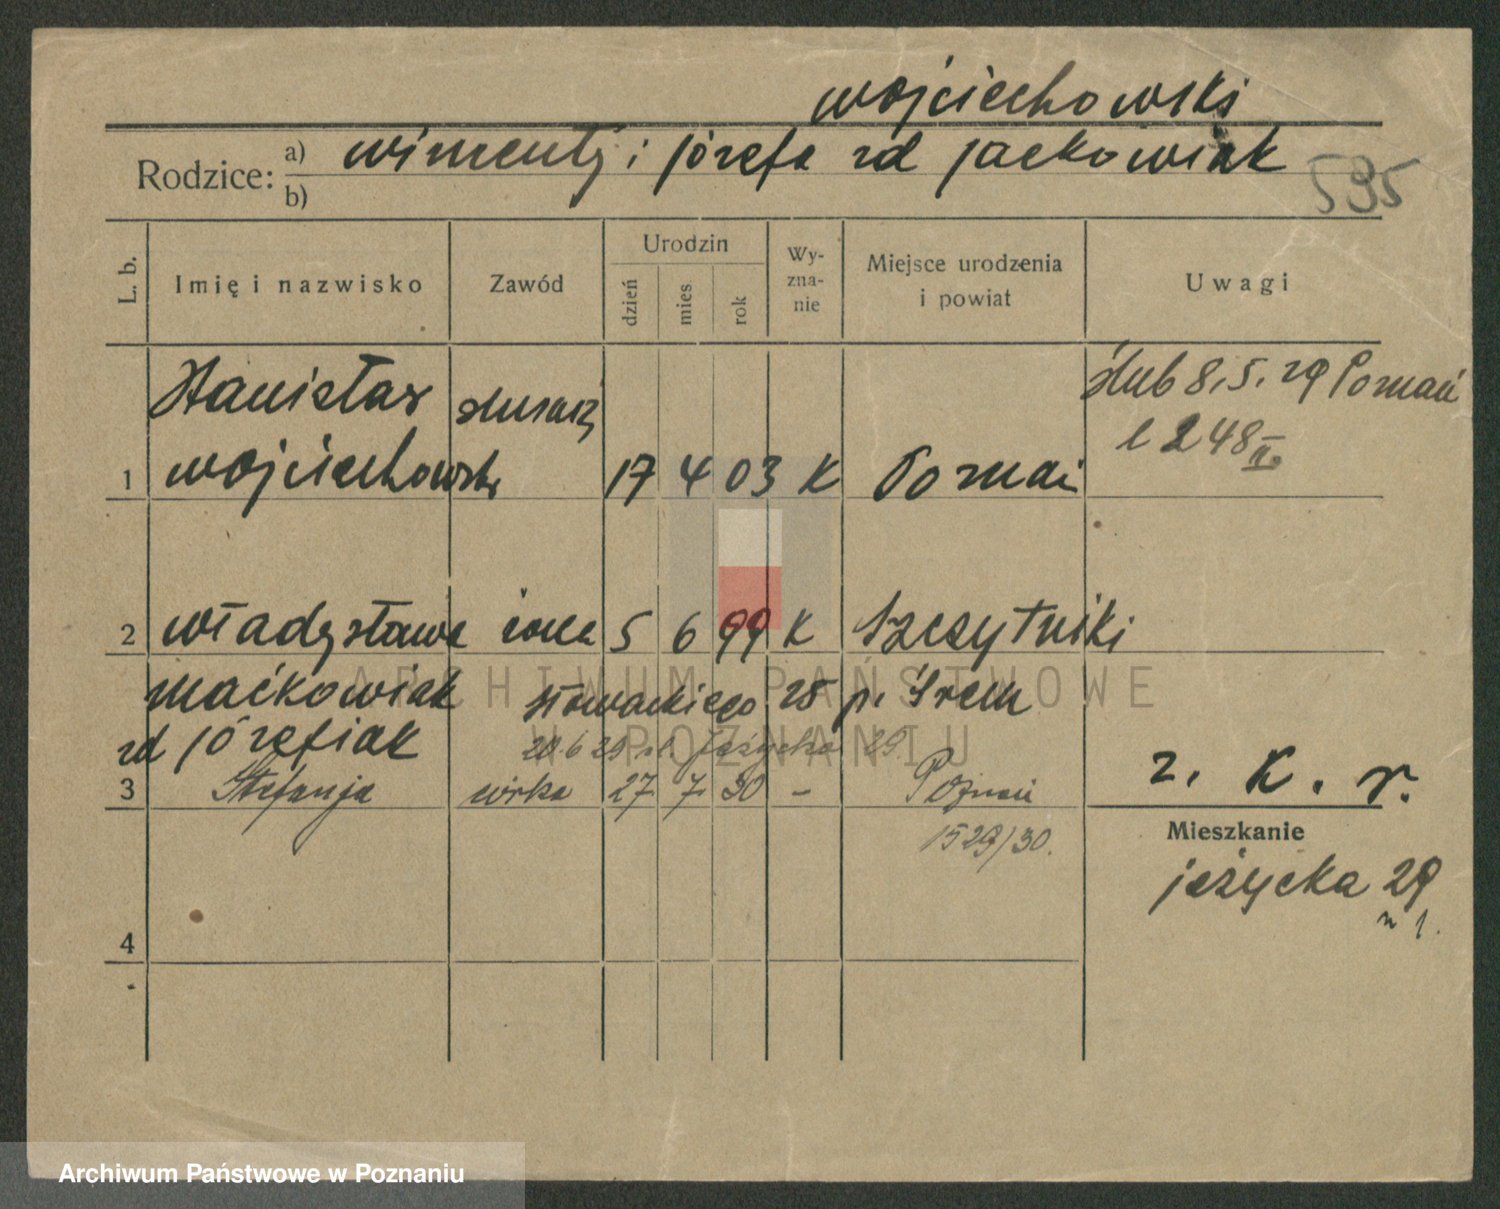 Wojciechowski
Rodzice: a) Wincenty i Józefa zd Jackowiak
b)
595
L. b. Imię i nazwisko Zawód Urodzin dzień mies rok Wyzna-nie Miejsce urodzenia i powiat Uwagi
Stanisław ślusarz ślub 8.5.29 Poznań
l 248 II.
1 Wojciechowski 17 4 03 K Poznań
2 Władysława żona 5 6 99 K Szczytniki
Maćkowiak Słowackiego 25 p. Śrem
zd Józefiak 20.6.29 Jeżycka 29
3 Stefanja córka 27 7 30 – Poznań z. K. r.
1529/30.
Mieszkanie
Jeżycka 29
4
ARCHIWUM PAŃSTWOWE
W POZNANIU
Archiwum Państwowe w Poznaniu